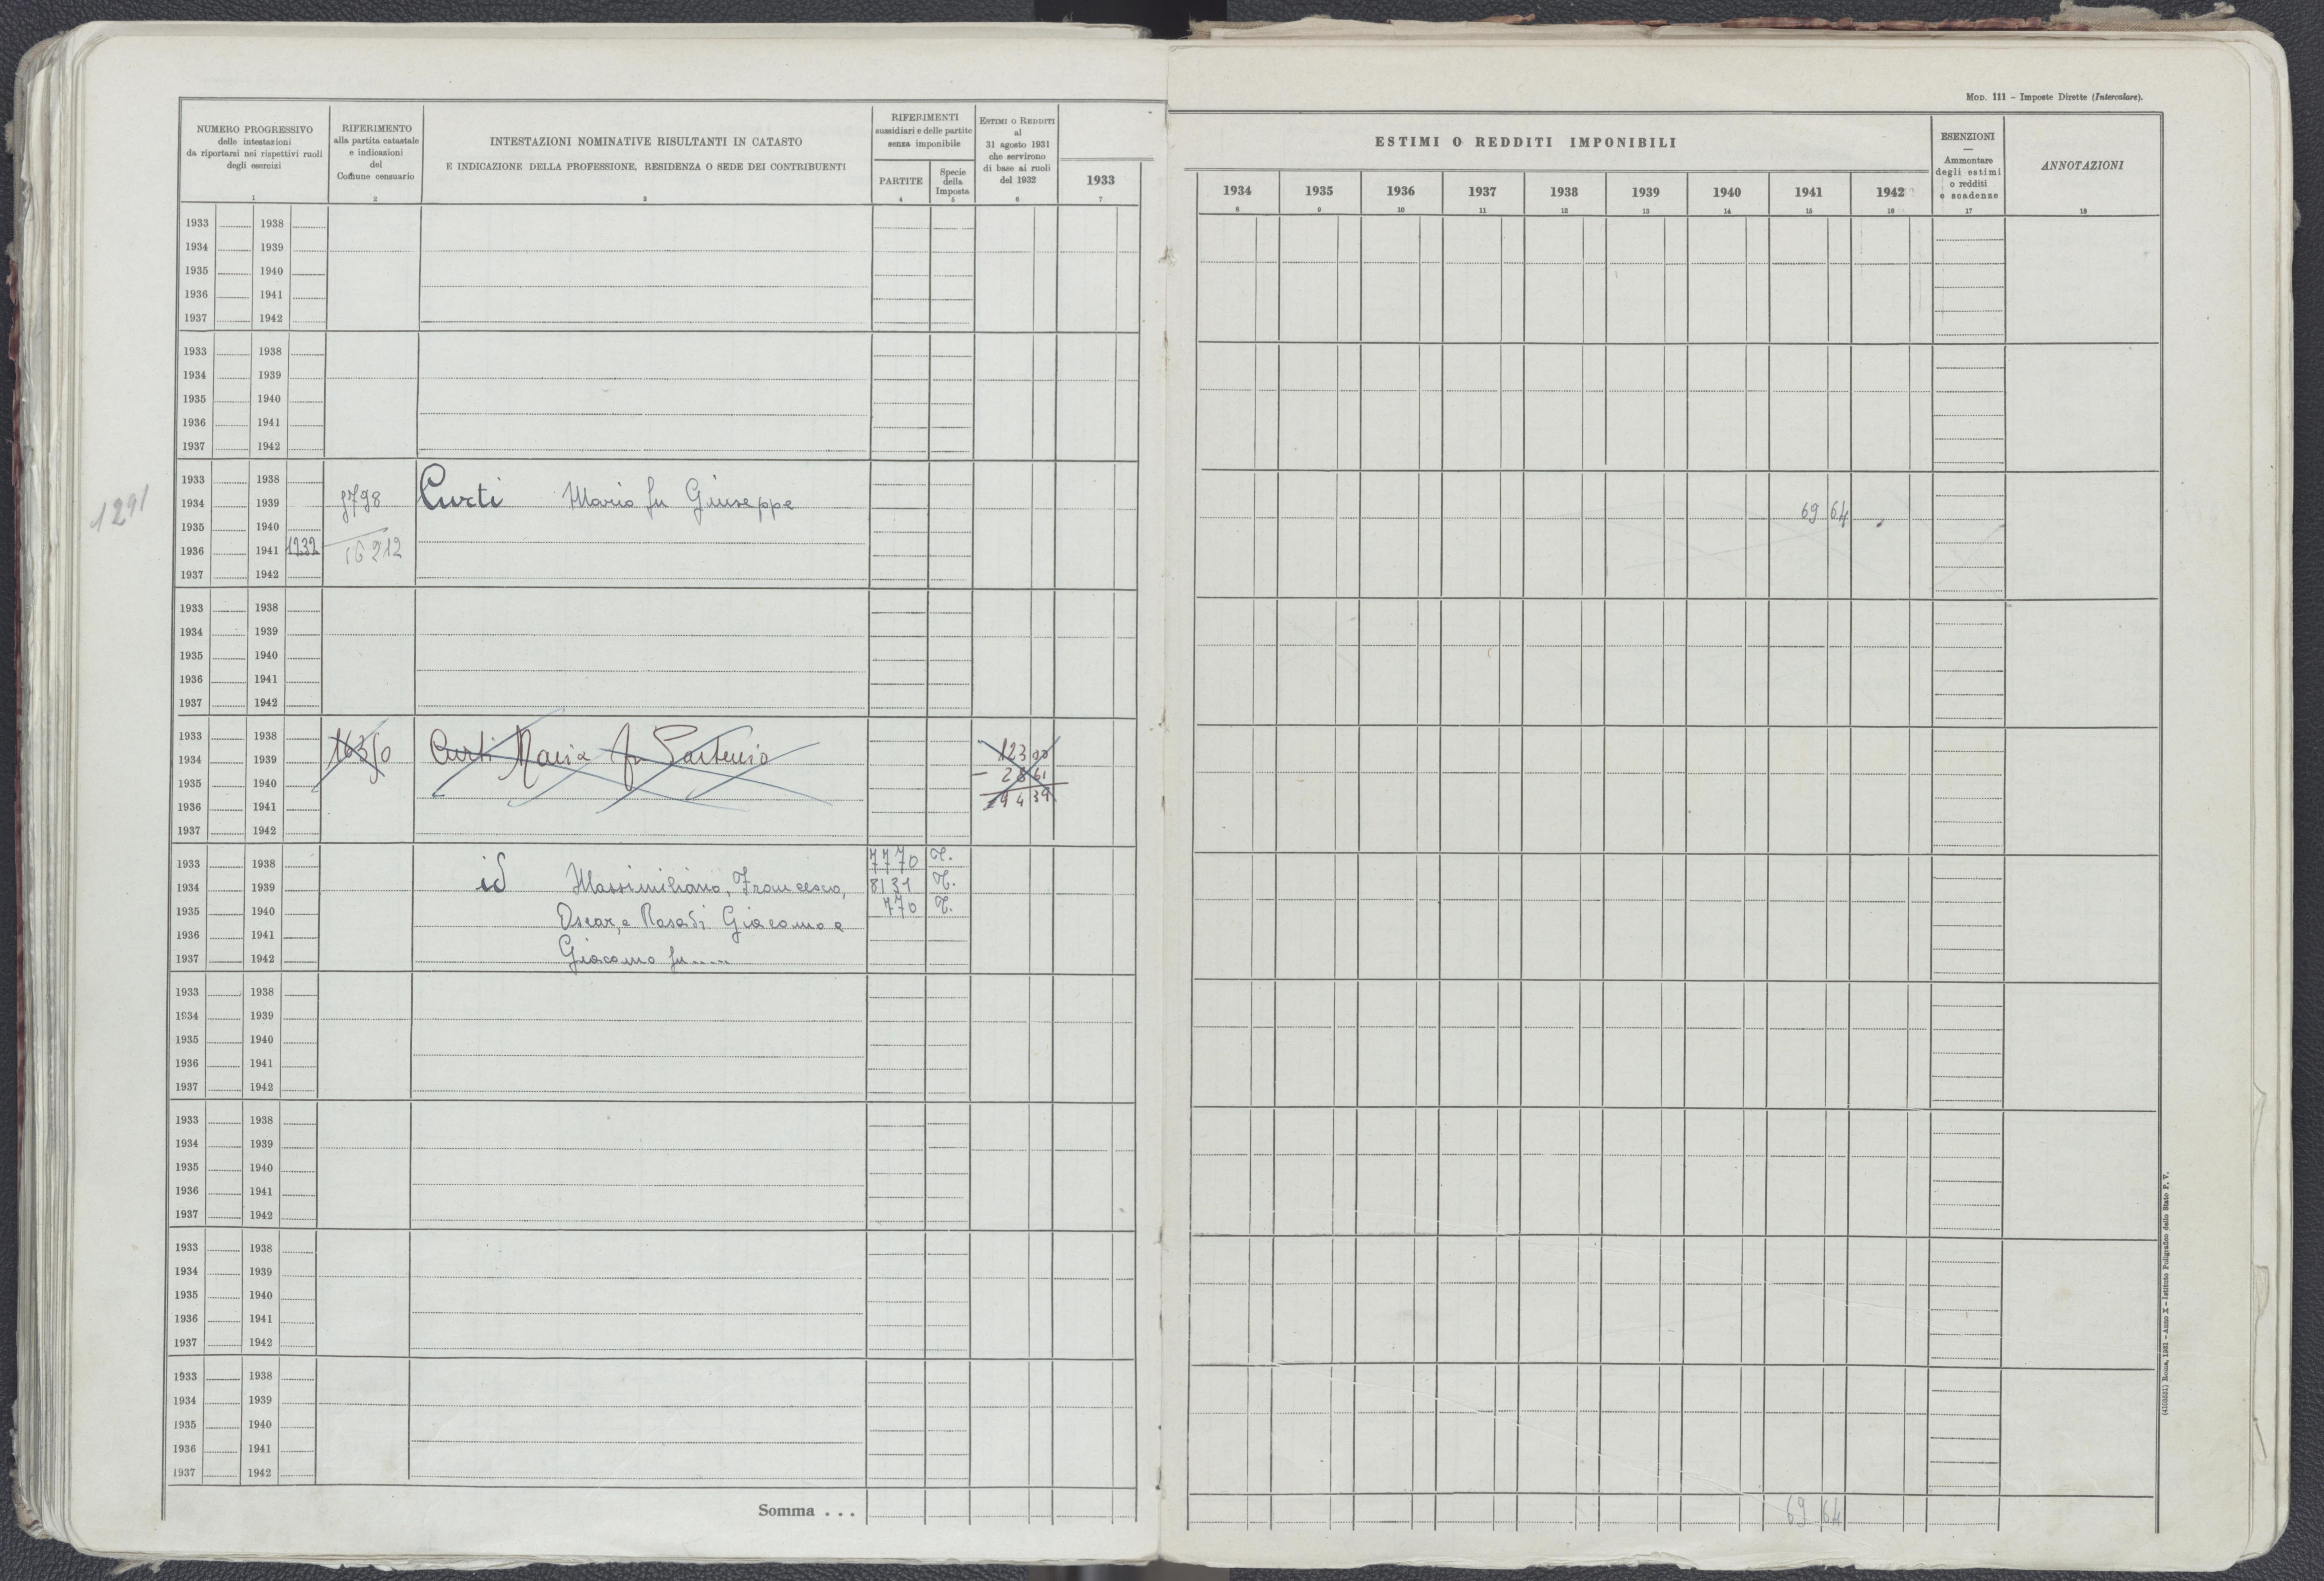 MOD. 111 – Imposte Dirette (Intercalare).
NUMERO PROGRESSIVO
delle intestazioni
da riportarsi nei rispettivi ruoli
degli esercizi
1
RIFERIMENTO
alla partita catastale
e indicazioni
del
Comune censuario
2
INTESTAZIONI NOMINATIVE RISULTANTI IN CATASTO
E INDICAZIONE DELLA PROFESSIONE, RESIDENZA O SEDE DEI CONTRIBUENTI
3
RIFERIMENTI
sussidiari e delle partite
senza imponibile
PARTITE
4
Specie
della
Imposta
5
ESTIMI O REDDITI
al
31 agosto 1931
che servirono
di base ai ruoli
del 1932
6
1933
7
ESTIMI O REDDITI IMPONIBILI
1934 1935 1936 1937 1938 1939 1940 1941 1942
8 9 10 11 12 13 14 15 16
ESENZIONI
—
Ammontare
degli estimi
o redditi
e scadenze
17
ANNOTAZIONI
18
1933 1938
1934 1939
1935 1940
1936 1941
1937 1942
1933 1938
1934 1939
1935 1940
1936 1941
1937 1942
1291
1933 1938
1934 1939 8798 Curti Mario fu Giuseppe 69 64
1935 1940
1936 1941 1232 16212
1937 1942
1933 1938
1934 1939
1935 1940
1936 1941
1937 1942
1933 1938
1934 1939 Curti Maria fu 123 00
1935 1940 – 28 61
1936 1941 94 39
1937 1942
1933 1938 7770 T.
1934 1939 id Massimiliano, Francesco, 8131 T.
1935 1940 Oscar, e Rosa di Giacomo e 770 T.
1936 1941
1937 1942 Giacomo fu.....
1933 1938
1934 1939
1935 1940
1936 1941
1937 1942
1933 1938
1934 1939
1935 1940
1936 1941
1937 1942
1933 1938
1934 1939
1935 1940
1936 1941
1937 1942
1933 1938
1934 1939
1935 1940
1936 1941
1937 1942
Somma . . . 69 64
(410331) Roma, 1931 – Anno X – Istituto Poligrafico dello Stato P. V.